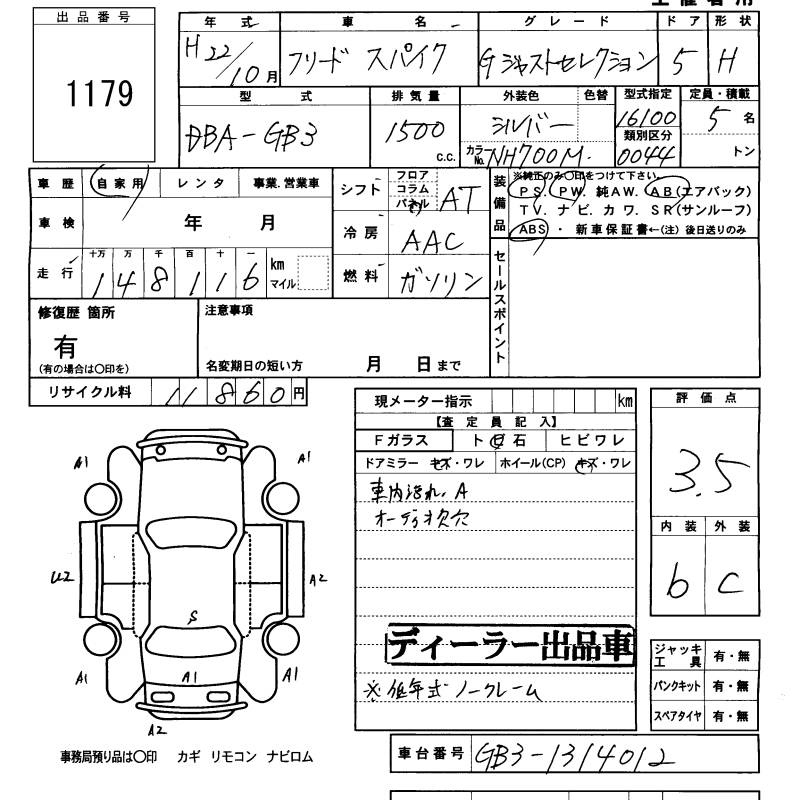 出品番号
1179
年式 車名 グレード ドア 形状
H22/10月 フリード スパイク Gジャストセレクション 5 H
型式 排気量 外装色 色替 型式指定 定員・積載
DBA-GB3 1500 C.C. シルバー 16100 5名
カラーNo. NH700M. 類別区分 0044 トン
車歴 自家用 レンタ 事業.営業車
車検 年 月
走行 十万 万 千 百 十 一
148116 km マイル
シフト フロア コラム パネル AT
冷房 AAC
燃料 ガソリン
装備品
※純正のみ〇印をつけて下さい。
PS. PW. 純AW. AB(エアバック)
TV. ナビ. カワ. SR(サンルーフ)
ABS ・ 新車保証書←(注) 後日送りのみ
セールスポイント
修復歴 箇所
有
(有の場合は〇印を)
注意事項
名変期日の短い方 月 日まで
リサイクル料 11860円
現メーター指示 km
【査定員記入】
Fガラス ト石 ヒビワレ
ドアミラー キズ・ワレ ホイール(CP) キズ・ワレ
車内汚れ.A
オーディオ欠穴
ディーラー出品車
※低年式 ノークレーム
評価点
3.5
内装 外装
b C
ジャッキ工具 有・無
パンクキット 有・無
スペアタイヤ 有・無
A1 A1
U2 A2
S
A1 A1 A1
A2
事務局預り品は〇印 カギ リモコン ナビロム
車台番号 GB3-1314012